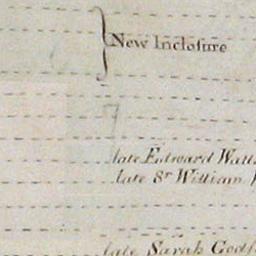 New Incloſure
late Edward
late Sr William
late Sarah